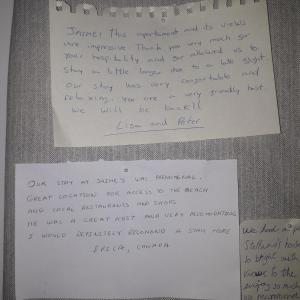 JAIME! This apartment and its views
are impressive. Thank you very much for
your hospitality and for allowed us to
stay a little longer due to a late flight.
Our stay was very comfortable and
relaxing. You are a very friendly host.
We will be back!!
Lisa and Peter
OUR STAY AT JAIME'S WAS PHENOMENAL.
GREAT LOCATION FOR ACCESS TO THE BEACH
AND LOCAL RESTAURANTS AND SHOPS
HE WAS A GREAT HOST AND VERY ACCOMODATING
I WOULD DEFINITELY RECOMMEND A STAY HERE
ERICA, CANADA
we had a
so bright with
views to the
enjoy so much